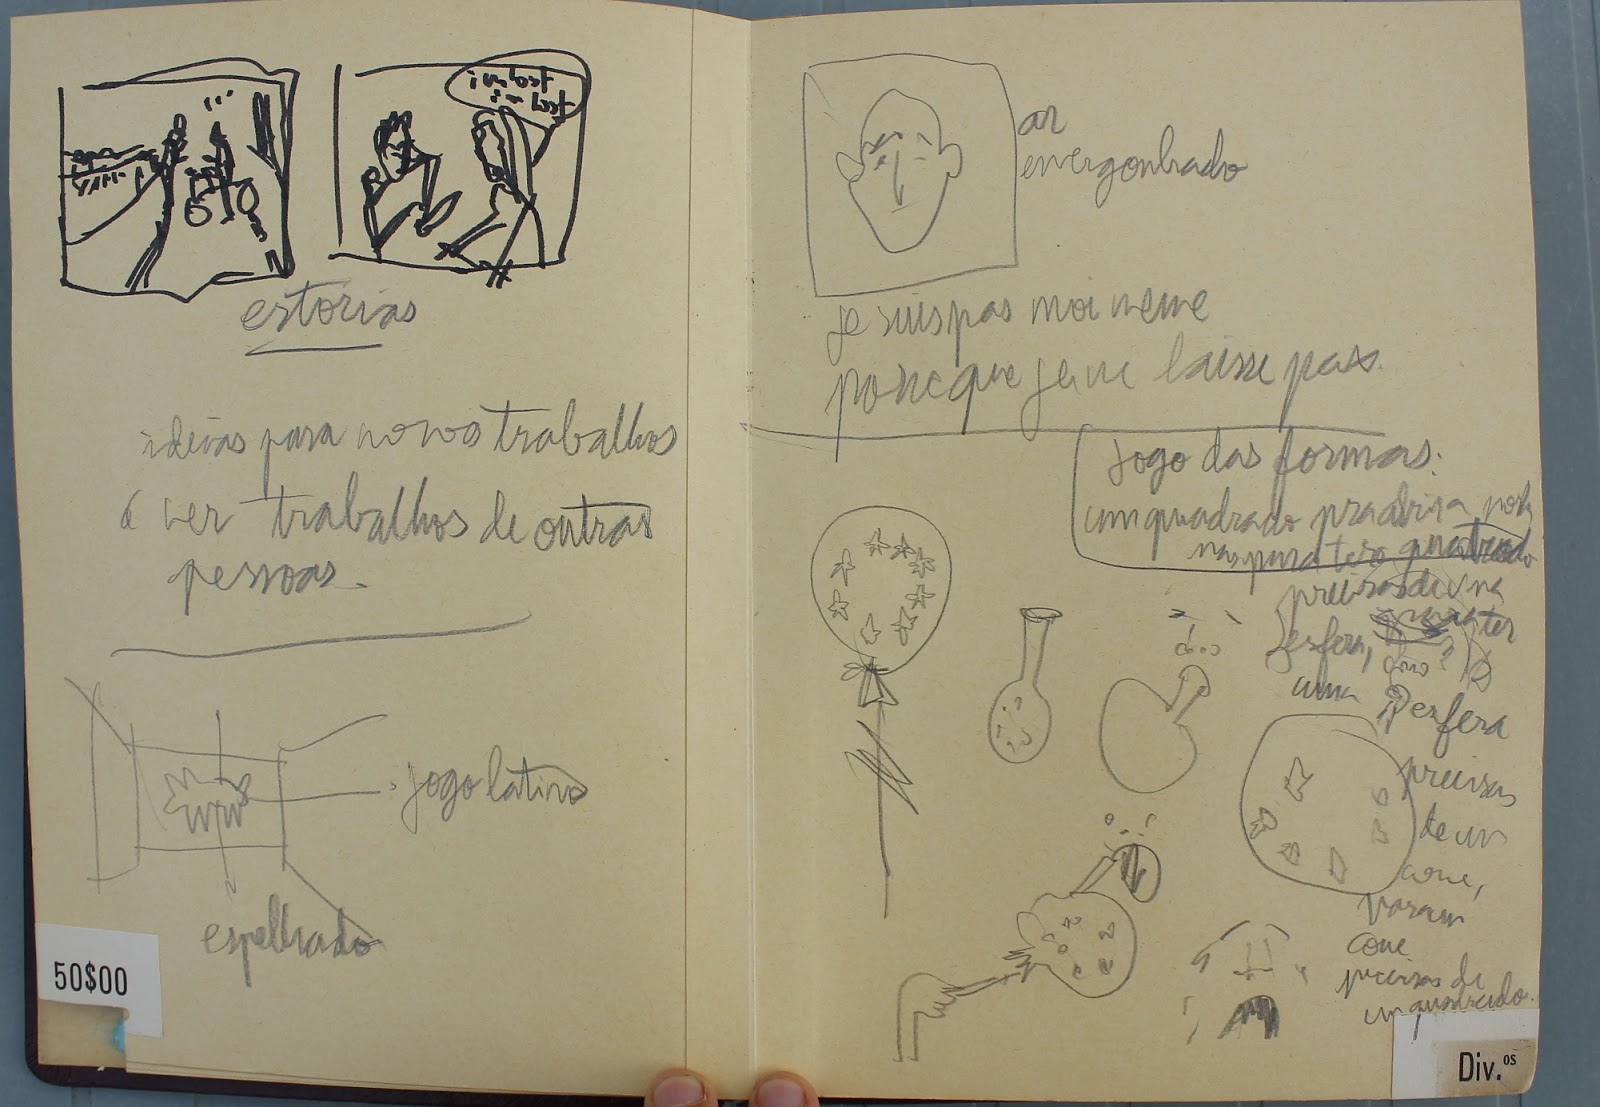 i'm lost
i'm lost
estorias
ideias para novos trabalhos
é ver trabalhos de outras
pessoas.
jogo latino
espelhado
50$00
ar
envergonhado
je suis pas moi meme
porceque je me laisse pas.
jogo das formas:
um quadrado precisa
mas para ter quadrado
precisas de uma
esfera, para ter
uma esfera
precisas
de um
cone,
para um
cone
precisas de
um quadrado.
Div.os